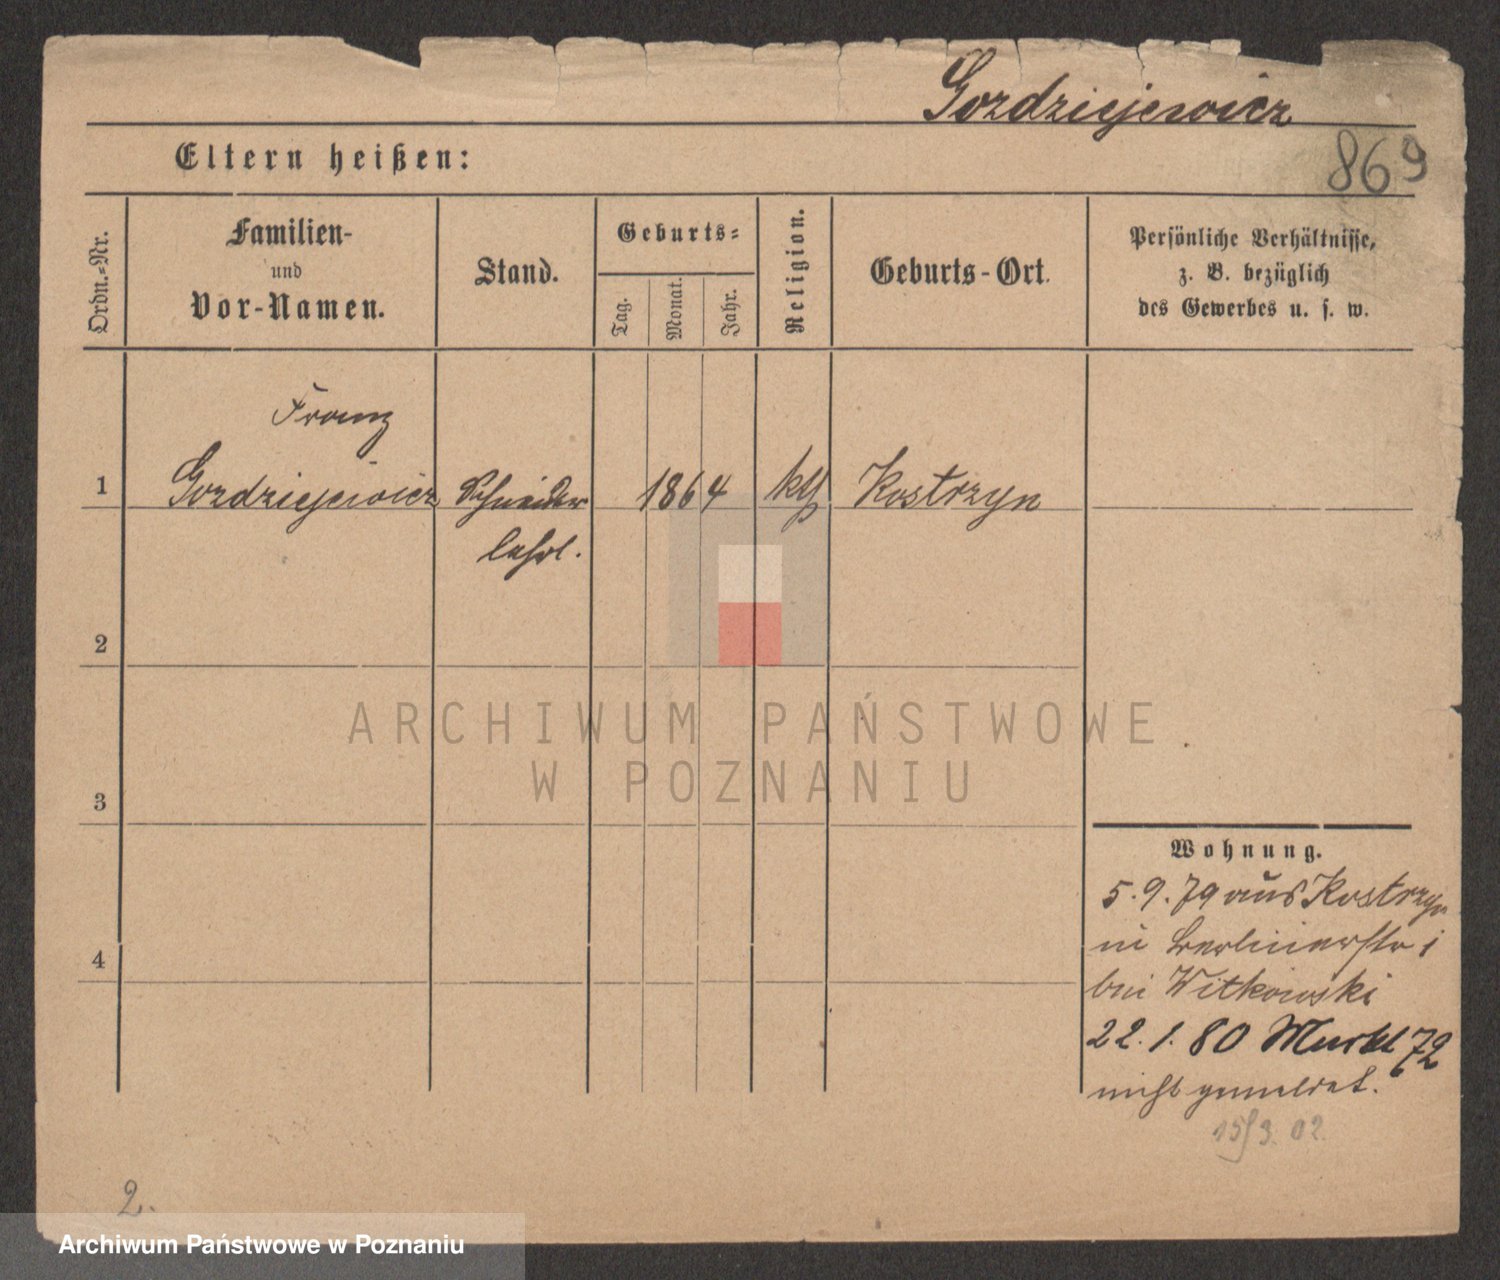 Gozdziejewicz
869
Eltern heißen:
Ordn.=Nr.
Familien-
und
Vor-Namen.
Stand.
Geburts=
Tag.
Monat.
Jahr.
Religion.
Geburts-Ort.
Persönliche Verhältnisse,
z. B. bezüglich
des Gewerbes u. s. w.
Franz
1 Gozdziejewicz Schneider 1864 kth Kostrzyn
lehrl.
2
ARCHIWUM PAŃSTWOWE
W POZNANIU
3
Wohnung.
5.9.79 aus Kostrzyn
in Berlinerstr 1
bei Witkowski
4
22.1.80 Markt 72
nicht gemeldet.
15/3.02.
2.
Archiwum Państwowe w Poznaniu